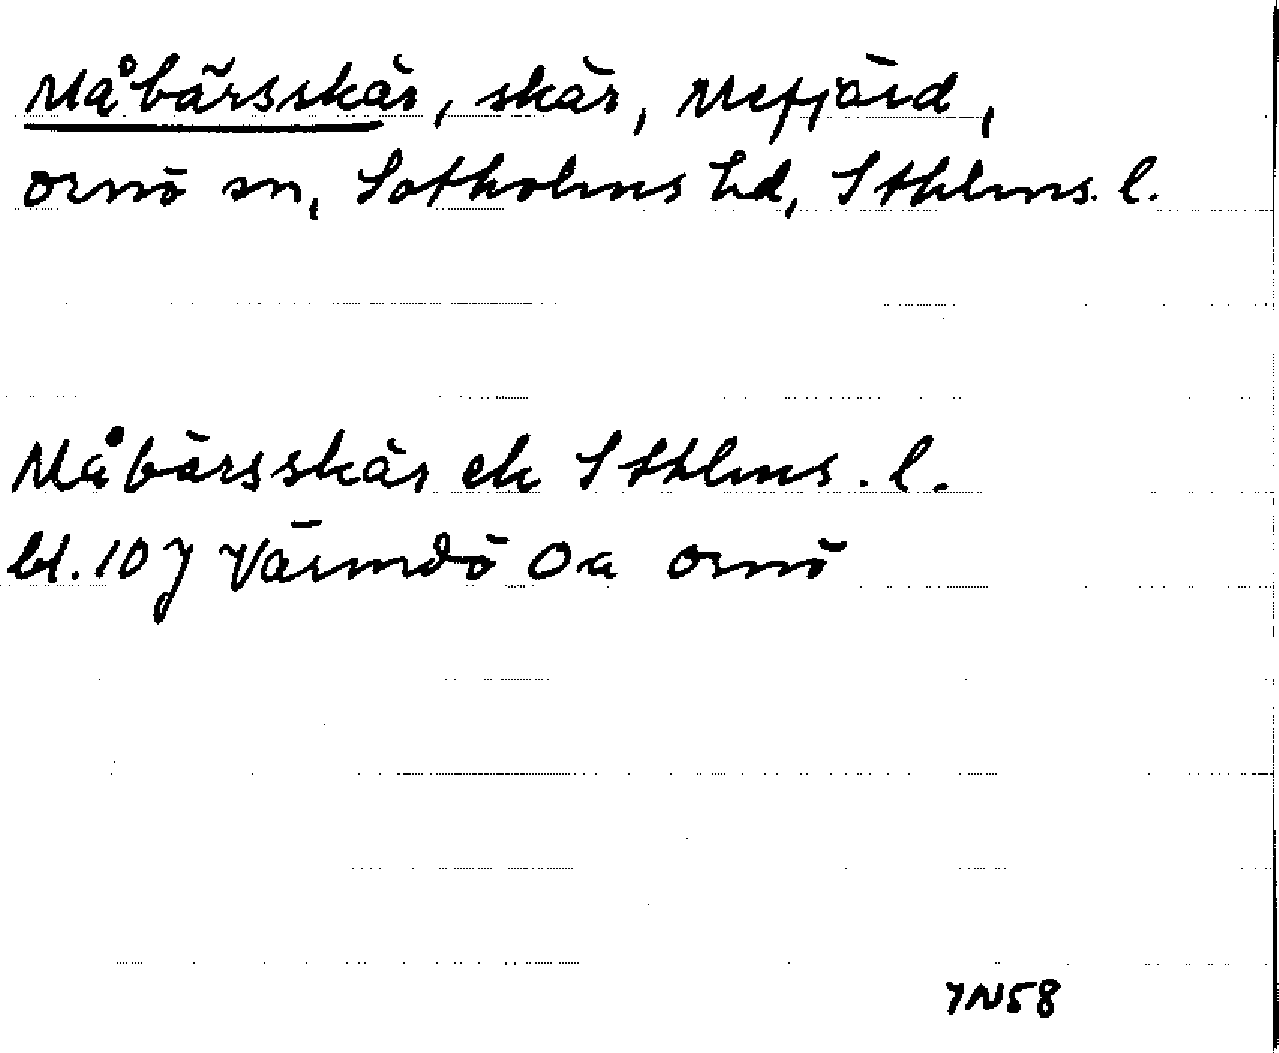 Måbärsskär, skär, Mefjärd,
Ornö sn, Sotholms hd, Sthlms. l.
Måbärsskär ek Sthlms. l.
bl. 107 Värmdö Oa Ornö
YN58